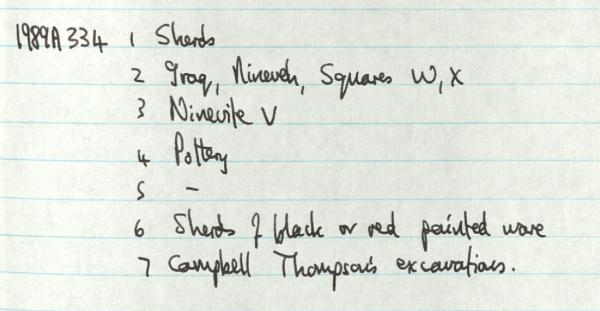 1989A 334 1 Sherds
2 Iraq, Nineveh, Squares W, X
3 Ninevite V
4 Pottery
5 -
6 Sherds of black or red painted ware
7 Campbell Thompson's excavations.